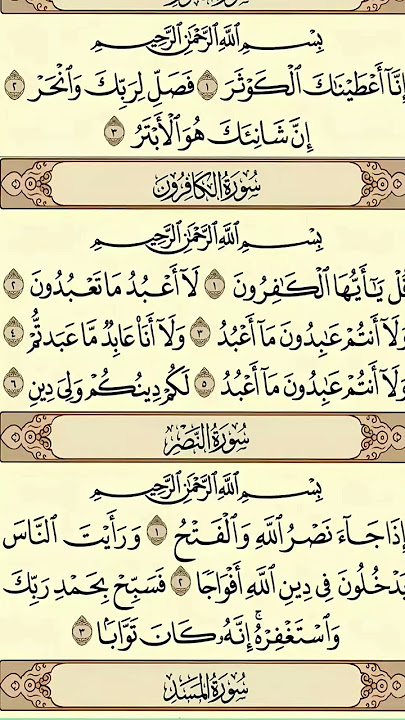 بِسْمِ اللَّهِ الرَّحْمَٰنِ الرَّحِيمِ
إِنَّآ أَعْطَيْنَٰكَ ٱلْكَوْثَرَ ١ فَصَلِّ لِرَبِّكَ وَٱنْحَرْ ٢
إِنَّ شَانِئَكَ هُوَ ٱلْأَبْتَرُ ٣
سُورَةُ الكَافِرُونَ
بِسْمِ اللَّهِ الرَّحْمَٰنِ الرَّحِيمِ
قُلْ يَٰٓأَيُّهَا ٱلْكَٰفِرُونَ ١ لَآ أَعْبُدُ مَا تَعْبُدُونَ ٢
وَلَآ أَنتُمْ عَٰبِدُونَ مَآ أَعْبُدُ ٣ وَلَآ أَنَا۠ عَابِدٌ مَّا عَبَدتُّمْ ٤
وَلَآ أَنتُمْ عَٰبِدُونَ مَآ أَعْبُدُ ٥ لَكُمْ دِينُكُمْ وَلِىَ دِينِ ٦
سُورَةُ النَّصْرِ
بِسْمِ اللَّهِ الرَّحْمَٰنِ الرَّحِيمِ
إِذَا جَآءَ نَصْرُ ٱللَّهِ وَٱلْفَتْحُ ١ وَرَأَيْتَ ٱلنَّاسَ
يَدْخُلُونَ فِى دِينِ ٱللَّهِ أَفْوَاجًا ٢ فَسَبِّحْ بِحَمْدِ رَبِّكَ
وَٱسْتَغْفِرْهُ ۚ إِنَّهُۥ كَانَ تَوَّابًۢا ٣
سُورَةُ المَسَدِ